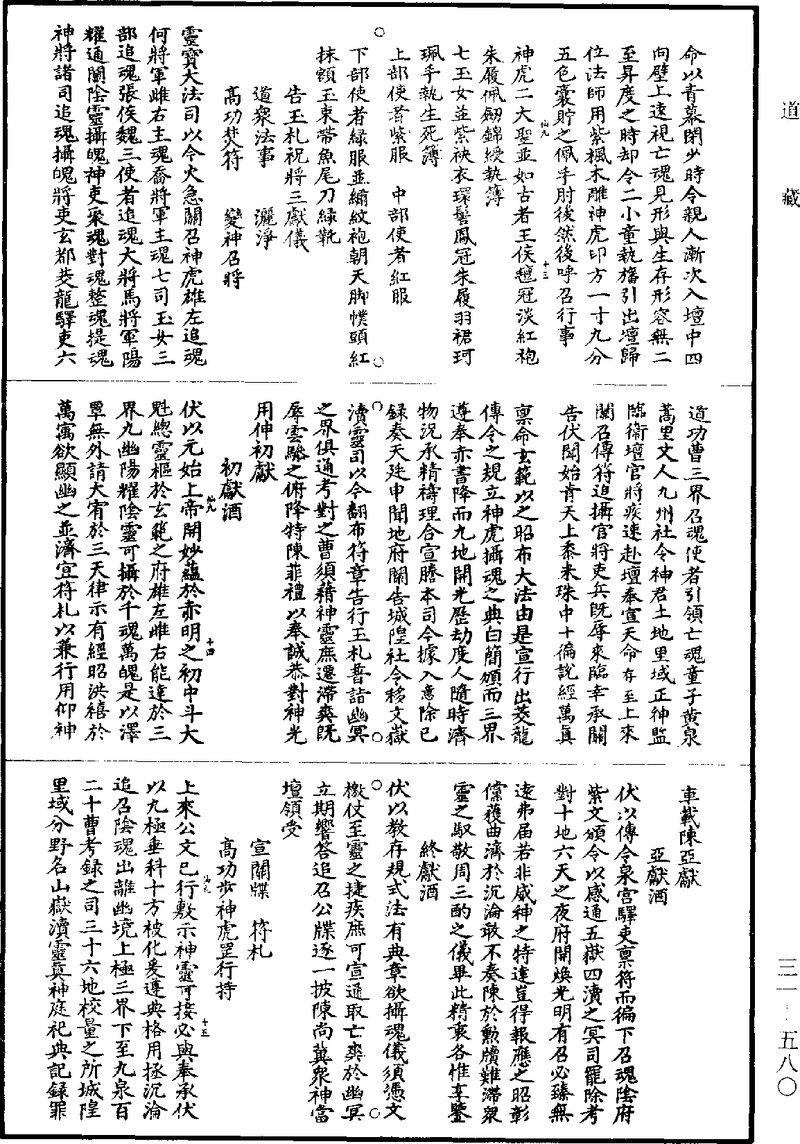 道藏
命以青幕閉少時令親人漸次入壇中四
向壁上遠視亡魂見形與生存形容無二
至昇度之時却令二小童執旛引出壇歸
位法師用紫楓木雕神虎印方一寸九分
五色囊貯之佩乎肘後然後呼召行事
神虎二大聖並如古者王侯𧝁冠淡紅袍
朱履佩劒錦綬執簿
七玉女並紫袂衣環髻鳳冠朱履羽裙珂
珮手執生死簿
上部使者紫服　中部使者紅服
下部使者綠服並綃紋袍朝天脚幞頭紅
抹額玉束帶魚尾刀綠靴
告玉札祝將三獻儀
道衆法事　灑淨
高功焚符　變神召將
靈寶大法司以今火急關召神虎雄左追魂
何將軍雌右主魂喬將軍主魂七司玉女三
部追魂張侯魏三使者追魂大將馬將軍陽
耀通闌陰靈攝魄神吏聚魂對魂整魂提魂
神將諸司追魂攝魄將吏玄都茭龍驛吏六
道功曹三界召魂使者引領亡魂童子黃泉
蒿里丈人九州社令神君土地里域正神監
臨衛壇官將疾速赴壇奉宣天命存至上來
關召傳符追攝官將吏兵旣辱來臨幸承關
告伏聞始青天上黍米珠中十徧說經萬眞
禀命玄範以之昭布大法由是宣行出茭龍
傳令之規立神虎攝魂之典白簡頒而三界
遵奉赤書降而九地開光歷劫度人隨時濟
物況承精禱理合宣謄本司今據入意除已
録奏天廷申聞地府關告城隍社令移文嶽
瀆靈司以今翻布符章告行玉札普詣幽冥
之界俱通考對之曹須藉神靈庶還滯爽旣
辱雲駿之俯降特陳菲禮以奉誠恭對神光
用伸初獻
初獻酒
伏以元始上帝開妙蘊於赤明之初中斗大
魁總靈樞於玄範之府雄左雌右能達於三
界九幽陽耀陰靈可攝於千魂萬魄是以澤
罩無外請大宥於三天律示有經昭洪禧於
萬寓欲顯幽之並濟宜符札以兼行用仰神
車載陳亞獻
亞獻酒
伏以傳令泉宫驛吏禀符而徧下召魂陰府
紫文頒令以感通五嶽四瀆之冥司罷除考
對十地六天之夜府開煥光明有召必臻無
遠弗届若非威神之特達豈得報應之昭彰
儻獲曲濟於沉淪敢不奏陳於勳牘難滯衆
靈之馭敬周三酌之儀畢此精衷各惟享鑒
終獻酒
伏以教存規式法有典章欲攝魂儀須憑文
檄仗至靈之捷疾庶可宣通取亡爽於幽冥
立期響答追召公牒逐一披陳尚冀衆神當
壇領受
宣關牒　符札
高功步神虎罡行持
上來公文已行敷示神靈可接必與奉承伏
以九極垂科十方被化爰遵典格用拯沉淪
追召陰魂出離幽境上極三界下至九泉百
二十曹考録之司三十六地校量之所城隍
里域分野名山嶽瀆靈眞神庭祀典記録罪
三一－五八〇